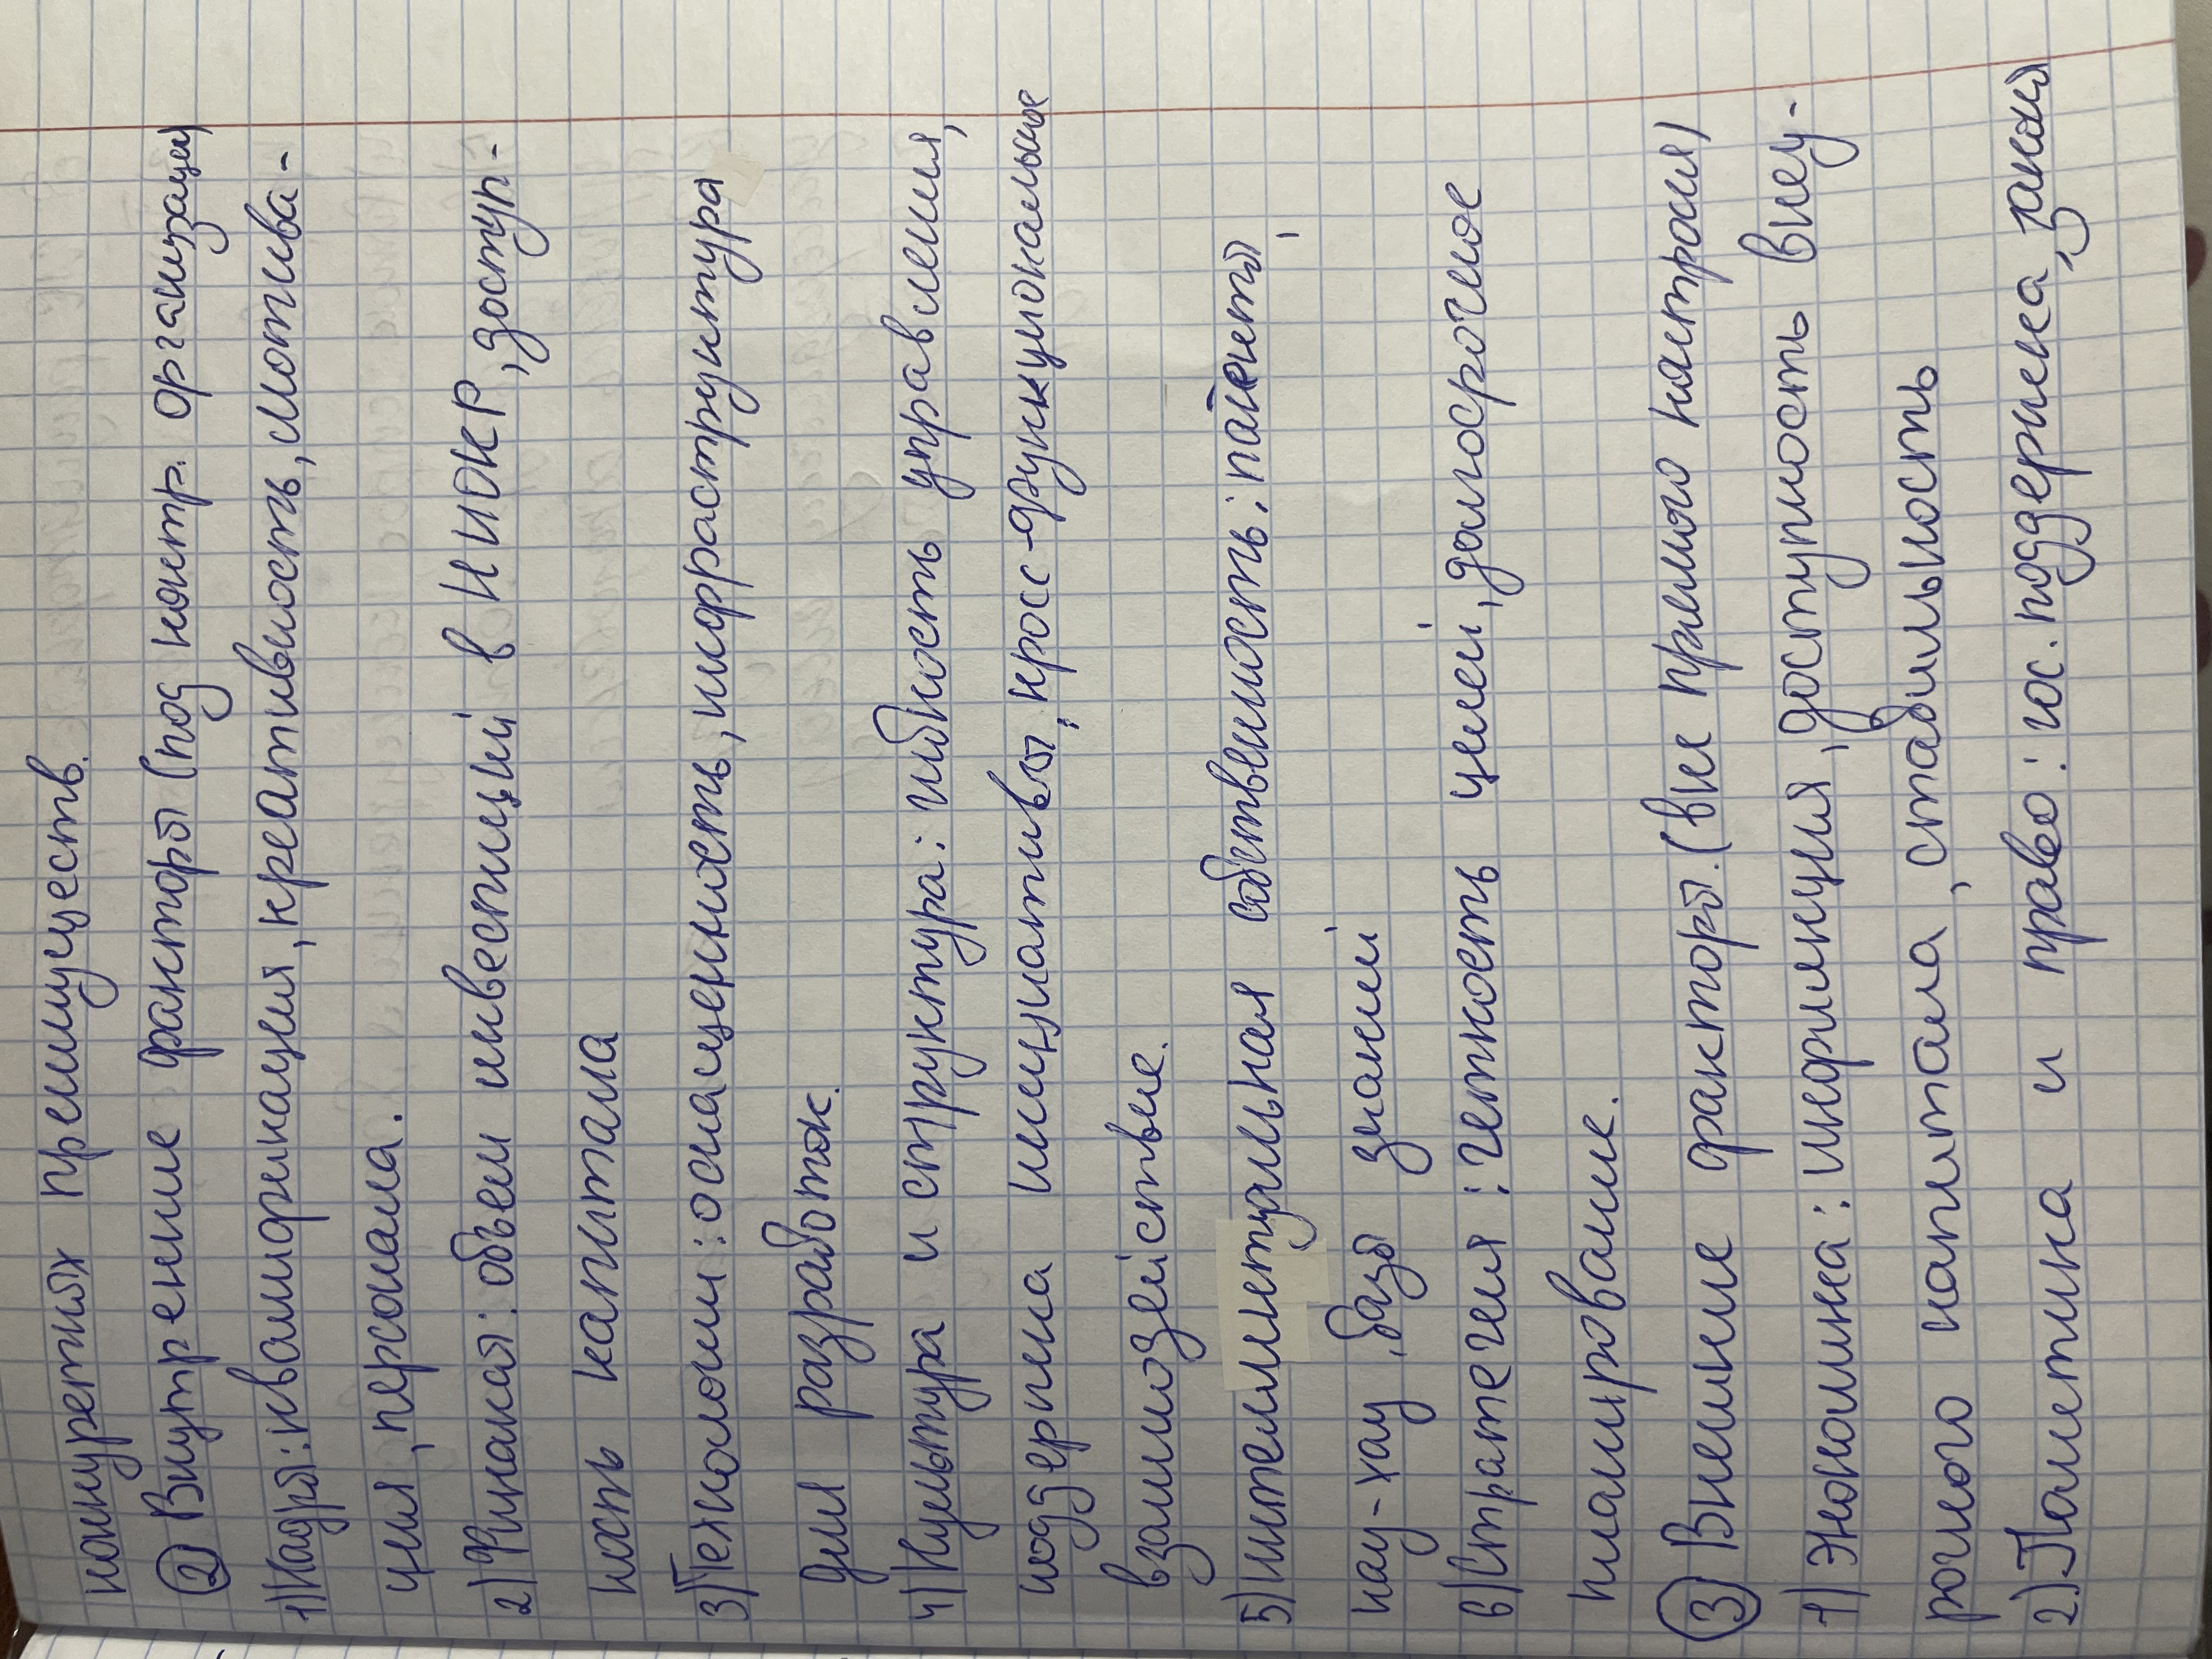 конкуретных преимуществ.
② Внутрение факторы (под контр. организации)
1) Кадры: квалификация, креативность, мотива-
ция, персонала.
2) Финансы: объем инвестиций в НИОКР, доступ-
ность капитала
3) Технологии: оснащенность, инфраструктура
для разработок.
4) Культура и структура: гибкость управления,
поддержка инициативы, кросс-функциональное
взаимодействие.
5) интеллектуальная собственность: патенты,
ноу-хау, базы знаний
6) Стратегия: четкость целей, долгосрочное
планирование.
③ Внешние факторы. (вне прямого контроля)
1) Экономика: инфляция, доступность внеш-
рочного капитала, стабильность
2) Политика и право: гос. поддержка, законы